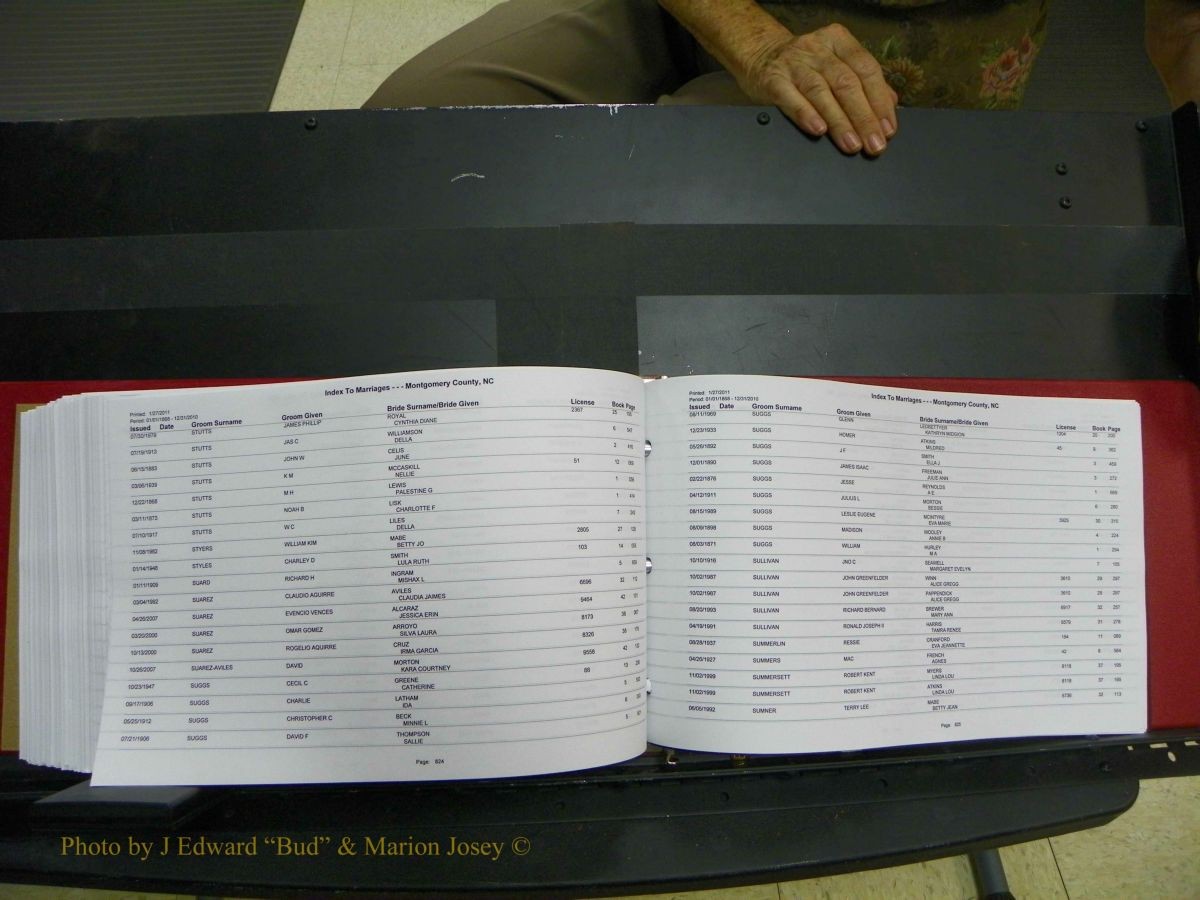 Index To Marriages - - - Montgomery County, NC
Printed: 1/27/2011
Period: 01/01/1868 - 12/31/2010
Issued Date Groom Surname Groom Given Bride Surname/Bride Given License Book Page
07/30/1978 STUTTS JAMES PHILLIP ROYAL 2367 25
CYNTHIA DIANE
07/19/1913 STUTTS JAS C WILLIAMSON 6
DELLA
06/15/1883 STUTTS JOHN W CELIS 2
JUNE
03/06/1939 STUTTS K M MCCASKILL 51 12
NELLIE
12/22/1868 STUTTS M H LEWIS 1
PALESTINE G
03/11/1873 STUTTS NOAH B LISK 1
CHARLOTTE F
07/10/1917 STUTTS W C LILES 7
DELLA
11/08/1982 STYERS WILLIAM KIM MABE 2805 27
BETTY JO
01/14/1948 STYLES CHARLEY D SMITH 103 14
LULA RUTH
01/11/1909 SUARD RICHARD H INGRAM 5
MISHAX L
03/04/1992 SUAREZ CLAUDIO AGUIRRE AVILES 6696 32
CLAUDIA JAIMES
04/26/2007 SUAREZ EVENCIO VENCES ALCARAZ 9464 42
JESSICA ERIN
03/20/2000 SUAREZ OMAR GOMEZ ARROYO 8173 38
SILVA LAURA
10/13/2000 SUAREZ ROGELIO AQUIRRE CRUZ 8326 38
IRMA GARCIA
10/26/2007 SUAREZ-AVILES DAVID MORTON 9556 42
KARA COURTNEY
10/23/1947 SUGGS CECIL C GREENE 88 13
CATHERINE
09/17/1906 SUGGS CHARLIE LATHAM 5
IDA
05/25/1912 SUGGS CHRISTOPHER C BECK 6
MINNIE L
07/21/1906 SUGGS DAVID F THOMPSON 5
SALLIE
Page: 824
Index To Marriages - - - Montgomery County, NC
Printed: 1/27/2011
Period: 01/01/1868 - 12/31/2010
Issued Date Groom Surname Groom Given Bride Surname/Bride Given License Book Page
08/11/1969 SUGGS GLENN LEDBETTER 1204 20 200
KATHRYN MIDGION
12/23/1933 SUGGS HOMER ATKINS 45 9 362
MILDRED
05/26/1892 SUGGS J F SMITH 3 459
ELLA J
12/01/1890 SUGGS JAMES ISAAC FREEMAN 3 272
JULIE ANN
02/22/1876 SUGGS JESSE REYNOLDS 1 669
A E
04/12/1911 SUGGS JULIUS L MORTON 6 280
BESSIE
08/15/1989 SUGGS LESLIE EUGENE MCINTYRE 5925 30 315
EVA MARIE
08/09/1898 SUGGS MADISON WOOLEY 4 224
ANNIE B
08/03/1871 SUGGS WILLIAM HURLEY 1 294
M A
10/10/1916 SULLIVAN JNO C SEAWELL 7 105
MARGARET EVELYN
10/02/1987 SULLIVAN JOHN GREENFELDER WINN 3610 29 297
ALICE GREGG
10/02/1987 SULLIVAN JOHN GREENFELDER PAPPENDICK 3610 29 297
ALICE GREGG
08/20/1993 SULLIVAN RICHARD BERNARD BREWER 6917 32 257
MARY ANN
04/19/1991 SULLIVAN RONALD JOSEPH II HARRIS 5579 31 278
TAMRA RENEE
08/28/1937 SUMMERLIN RESSIE CRANFORD 184 11 069
EVA JEANNETTE
04/26/1927 SUMMERS MAC FRENCH 42 8 564
AGNES
11/02/1999 SUMMERSETT ROBERT KENT MYERS 8118 37 195
LINDA LOU
11/02/1999 SUMMERSETT ROBERT KENT ATKINS 8118 37 195
LINDA LOU
06/05/1992 SUMNER TERRY LEE MABE 5736 32 113
BETTY JEAN
Page: 825
Photo by J Edward “Bud” & Marion Josey ©